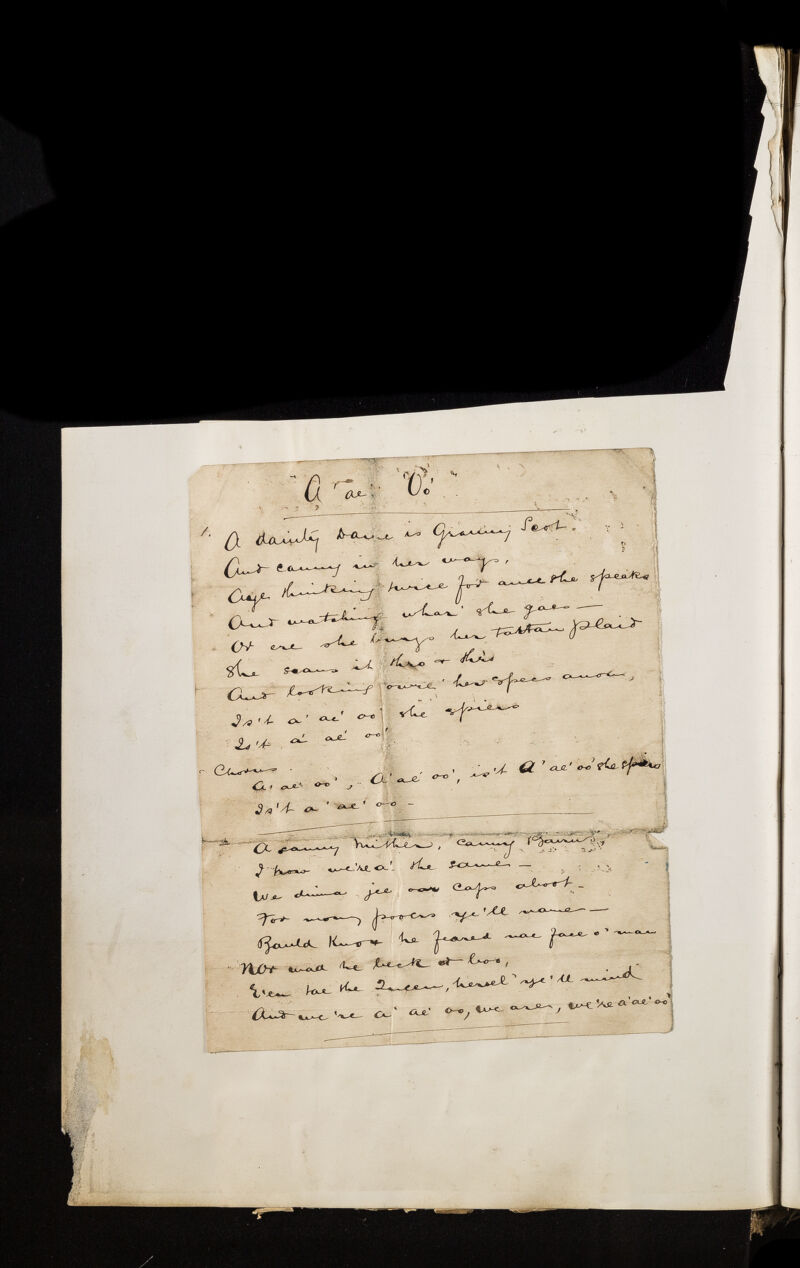 "A' ae' Oo'"
1. A dainty Dame is Granny Scot.
And canny in her ways,
Aye thinking twice for ance she speaks
And watching whar' she gaes —
Or ere she buys her tartan plaid
She scans it thro & thro
And looking owre' her specs anoo,
Is't a' ae' oo' she spiers
Is't a' ae' oo'
Chorus
A' ae' oo', A' ae' oo', is't A' ae' oo' she spiers
Is't a' ae' oo —
2 A canny mither, canny Bairns,
I trow we're a' the same —
We dinna jee oor caps aboot —
For mony pooers ye'll name —
Bauld Knox he feared nae face o' man
Nor wad he beck or boo,
E'en tae the Queen, hersel' ye'll mind
And we're a' ae' oo, we are, we're a' ae' oo'